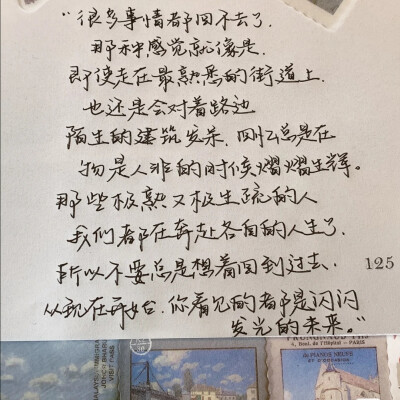 "很多事情都回不去了.
那种感觉就像是.
即使走在最熟悉的街道上.
也还是会对着路边
陌生的建筑发呆.回忆总是在
物是人非的时候熠熠生辉。
那些极熟又极生疏的人
我们都在奔赴各自的人生了.
所以不要总是想着回到过去.
125
从现在开始.你看见的都是闪闪
发光的未来。"
VISIT PARIS
4, Boul. de l'Hôpital - PARIS
PIANOS NEUFS